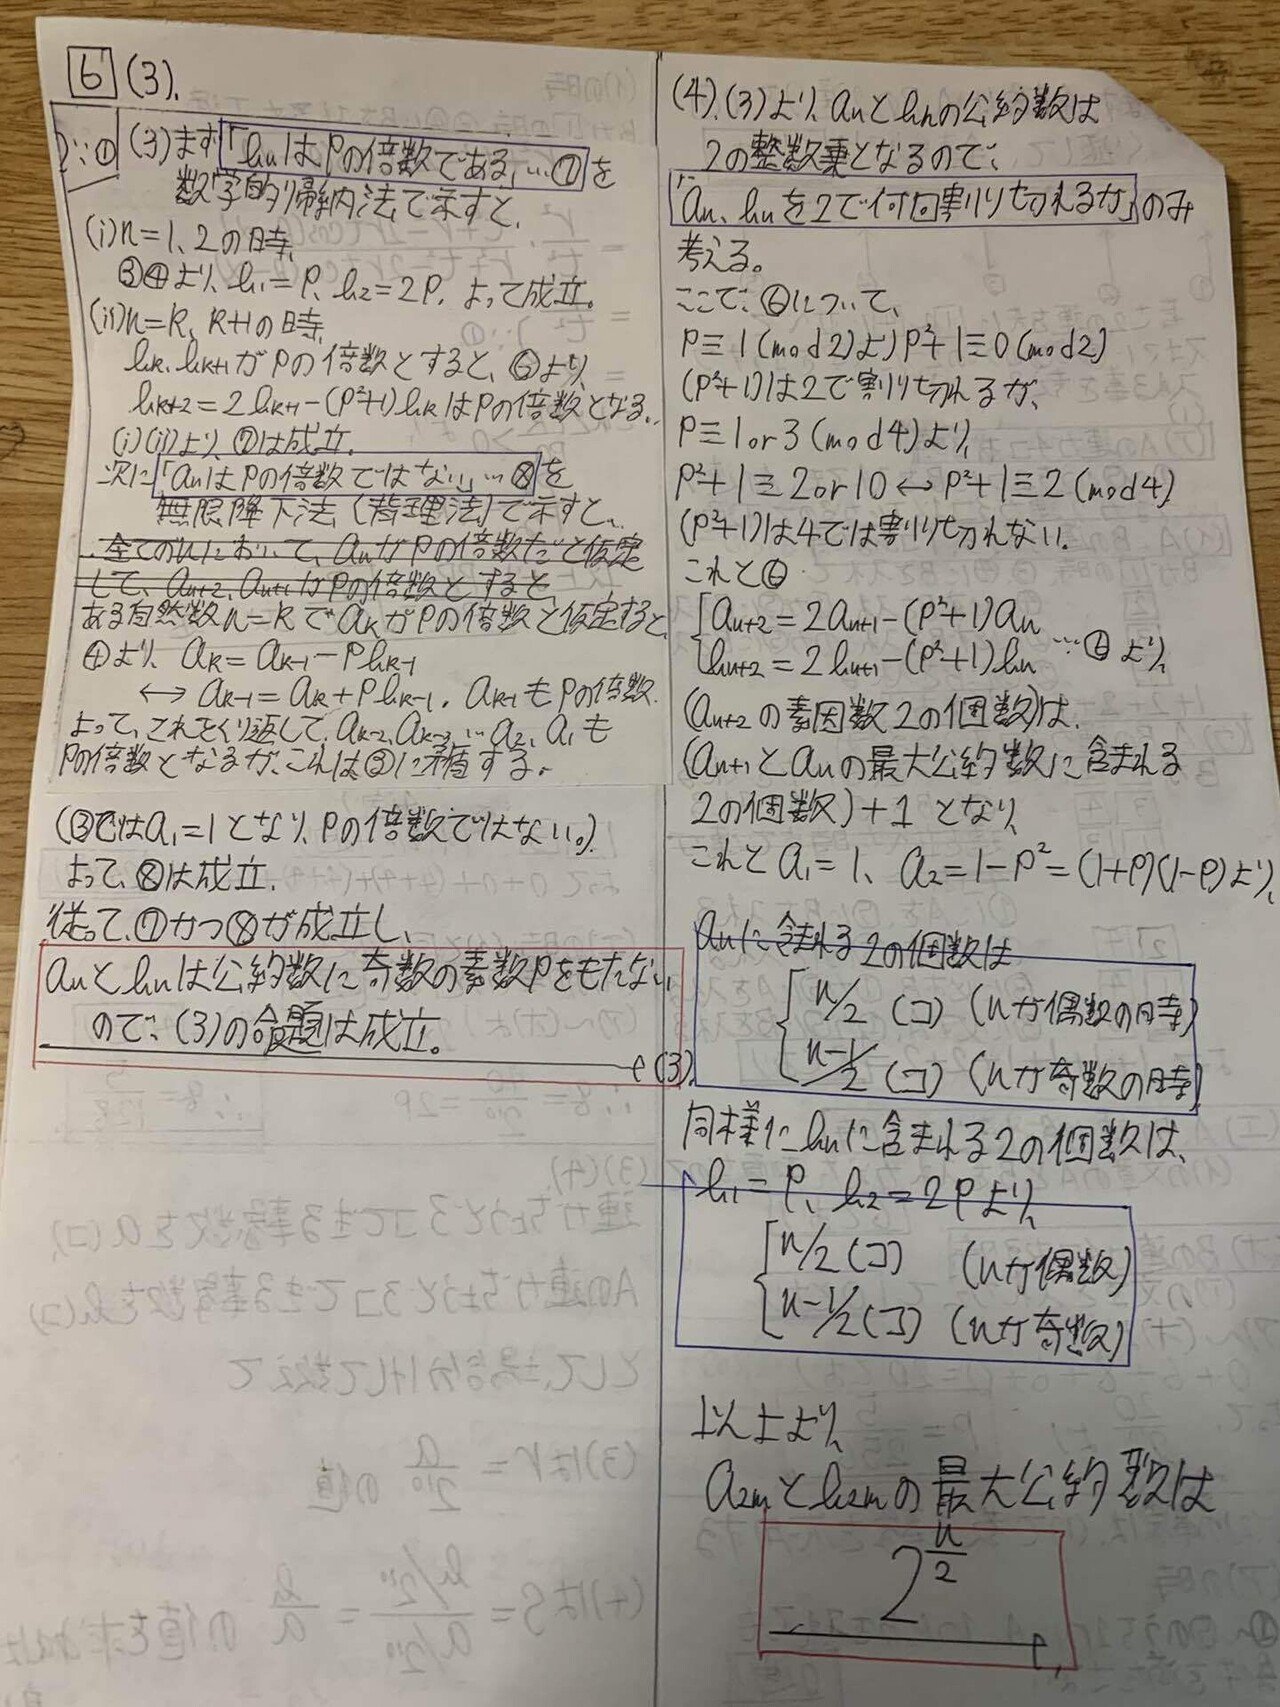 6 (3).
∵① (3)まず「bnはPの倍数である」…⑦を
数学的帰納法で示すと、
(i)n=1、2の時、
③④より、b₁=P、b₂=2P、よって成立。
(ii)n=k、k+1の時、
bk、bk+1がPの倍数とすると、⑥より、
bk+2=2bk+1-(P²+1)bkはPの倍数となる。
(i)(ii)より、⑦は成立。
次に「anはPの倍数ではない」…⑧を
無限降下法(背理法)で示すと、
全てのnにおいて、anがPの倍数だと仮定
して、an+2、an+1がPの倍数とすると、
ある自然数n=kでakがPの倍数と仮定すると、
④より、ak=ak-1-Pbk-1
↔ ak-1=ak+Pbk-1、ak-1もPの倍数。
よって、これをくり返して、ak-2、ak-3、…a2、a1も
Pの倍数となるが、これは③に矛盾する。
(③ではa₁=1となり、Pの倍数ではない。)
よって、⑧は成立。
従って、⑦かつ⑧が成立し、
anとbnは公約数に奇数の素数Pをもたない
ので、(3)の命題は成立。
(3).
(4).(3)より、anとbnの公約数は
2の整数乗となるので、
「an、bnを2で何回割り切れるか」のみ
考える。
ここで、⑥について、
P≡1(mod2)よりP²+1≡0(mod2)
(P²+1)は2で割り切れるが、
P≡1or3(mod4)より、
P²+1≡2or10↔P²+1≡2(mod4)
(P²+1)は4では割り切れない。
これと⑥
an+2=2an+1-(P²+1)an
bn+2=2bn+1-(P²+1)bn …⑥より、
(an+2の素因数2の個数)は、
(an+1とanの最大公約数に含まれる
2の個数)+1となり、
これとa₁=1、a₂=1-P²=(1+P)(1-P)より、
anに含まれる2の個数は
n/2(コ)(nが偶数の時)
n-1/2(コ)(nが奇数の時)
同様にbnに含まれる2の個数は、
b₁=P、b₂=2Pより、
n/2(コ)(nが偶数)
n-1/2(コ)(nが奇数)
以上より、
a2mとb2mの最大公約数は
2^(n/2)